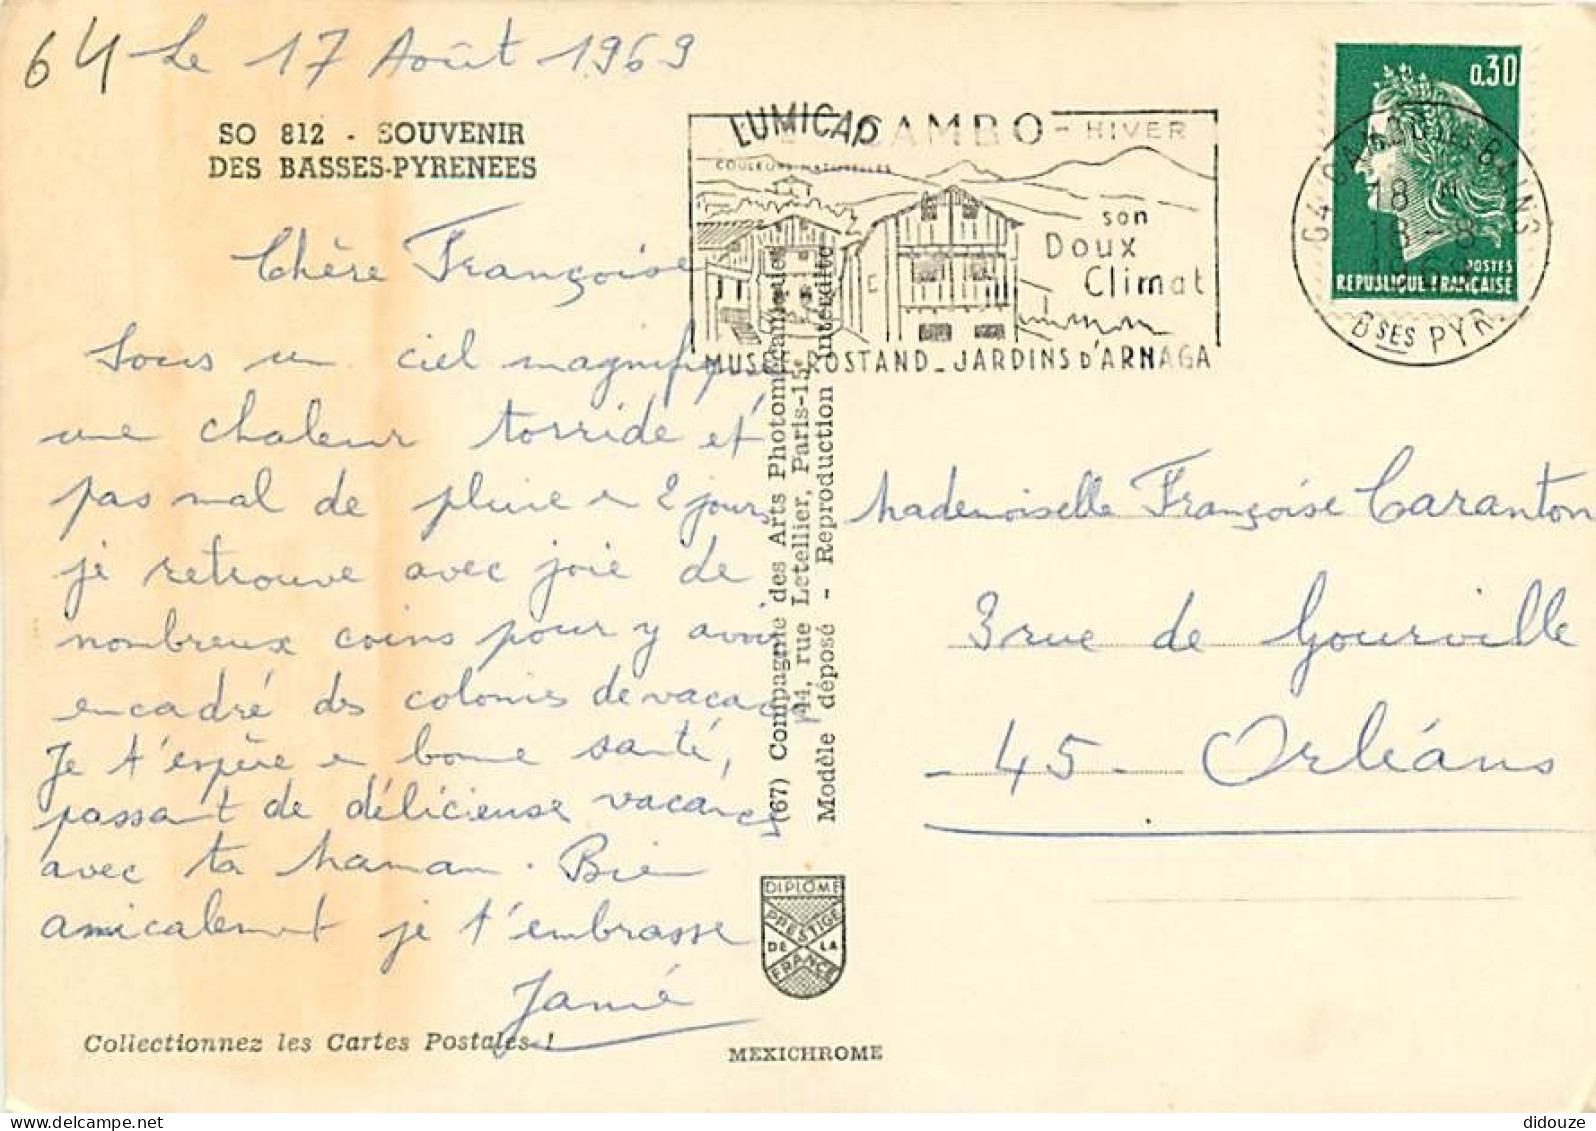 64 Le 17 Août 1969
SO 812 - SOUVENIR
DES BASSES-PYRENEES
LUMICAP
COULEURS NATURELLES
CAMBO - HIVER
son
Doux
Climat
MUSEE ROSTAND - JARDINS D'ARNAGA
0,30
POSTES
REPUBLIQUE FRANCAISE
64 CAMBO-LES-BAINS
18 H
18 - 8
1969
BSES PYR.
Chère Françoise
Sous un ciel magnifique
une chaleur torride et
pas mal de pluie en 2 jours
je retrouve avec joie de
nombreux coins pour y avoir
encadré des colonies de vacances
Je t'espère en bonne santé,
passant de délicieuse vacances
avec ta Maman. Bien
amicalement je t'embrasse
(67) Compagnie des Arts Photomécaniques
44, rue Letellier, Paris-15e
Modèle déposé - Reproduction interdite
Mademoiselle Françoise Caranton
3 rue de Gourville
- 45 - Orléans
DIPLOME
PRESTIGE
DE LA
FRANCE
Collectionnez les Cartes Postales !
MEXICHROME
didouze @ delcampe.net